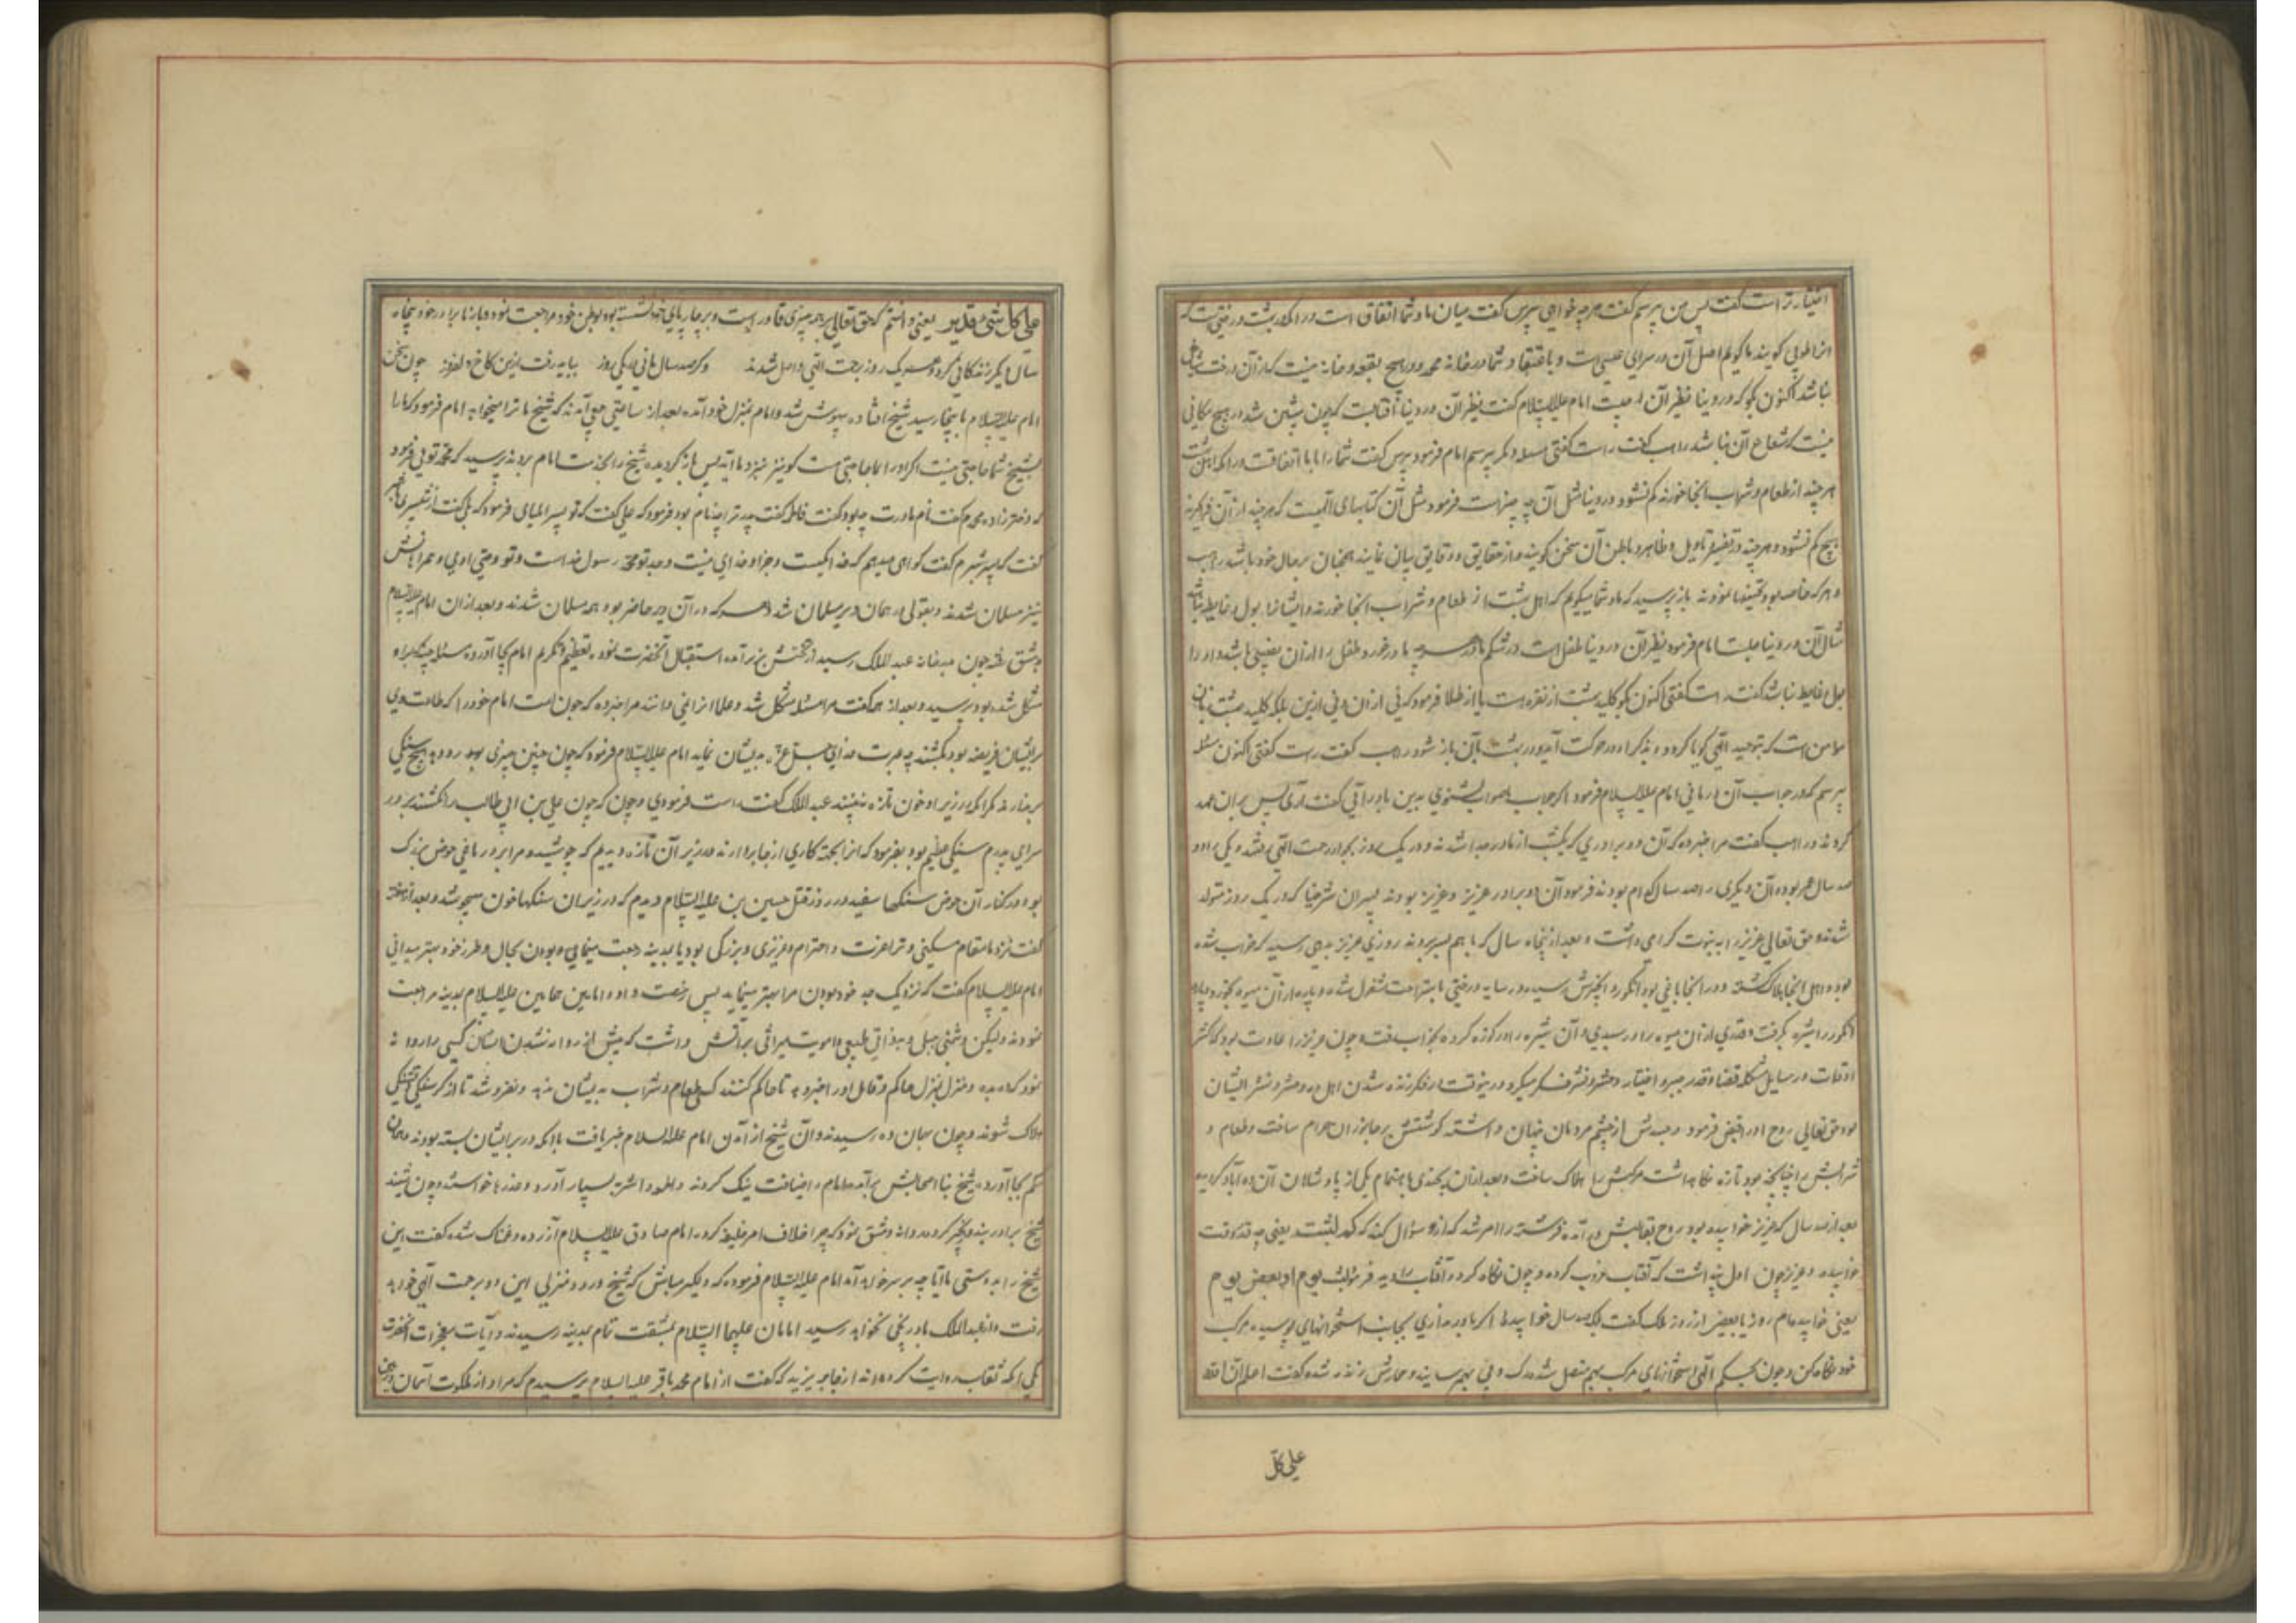 اختیار تر است گفت پس من پرسم گفت هر چه خواهی پرس گفت میان ما و شما اتفاق است در آنکه در بهشت درختی هست که
انرا طوبی گویند ما گوئیم اصل آن در سرای عیسی است و باعتقاد شما در خانه محمد و در هیچ بقعه و خانه نیست که از آن درخت شاخی
نباشد اکنون بگو که در دنیا نظیر آن چیست امام علیه السلام گفت نظیر آن در دنیا آفتابست که چون پیشین شد در هیچ مکانی
نیست که شعاع آن نباشد راهب گفت راست گفتی مسئله دیگر پرسم امام فرمود پرس گفت شما را با ما اتفاقست در آنکه اهل بهشت
هر چند از طعام و شراب آنجا خورند کم نشود در دنیا مثل آن چه چیز است فرمود مثل آن کتابهای الهیست که هر چند از آن فراگیرند
هیچ کم نشود و هر چند در تفسیر و تاویل و ظاهر و باطن آن سخن گویند و از حقایق و دقایق بیان نمایند همچنان بر حال خود باشد راهب
و هر که حاضر بود تحسینها نمودند باز پرسید که ما و شما میگوئیم که اهل بهشت از طعام و شراب آنجا خورند و ایشانرا بول و غایط نباشد
مثال آن در دنیا چیست امام فرمود نظیر آن در دنیا طفل است در شکم مادر هر چه مادر خورد طفل را از آن نصیبی باشد و او را
بول و غایط نباشد گفت راست گفتی اکنون بگو کلید بهشت از نقره است یا از طلا فرمود که نی از آن و نی ازین بلکه کلید بهشت زبان
مؤمن است که بتوحید الهی گویا گردد و بذکر او در حرکت آید و در بهشت بآن باز شود راهب گفت راست گفتی اکنون مسئله
پرسم که در جواب آن در مانی امام علیه السلام فرمود اگر جواب بصواب بشنوی بدین ما در آئی گفت آری پس بران عهد
کردند و راهب گفت مرا خبر ده که آن دو برادری که یکشب از مادر جدا شدند و در یک روز بجوار رحمت الهی رفتند و یکی را دو
صد سال عمر بوده آن دیگری را صد سال کدام بودند فرمود آن دو برادر عزیر و عزیز بودند پسران شرخیا که در یک روز متولد
شدند و حق تعالی عزیر را به نبوت گرامی داشت و بعد از پنجاه سال که با هم بسر بردند روزی عزیر بدهی رسید که خراب شده
بود و اهل آنجا هلاک گشته و در آنجا باغی بود انگور و انجیرش رسیده در سایه درختی باستراحت مشغول شد و پاره از آن میوه بخورد و پاره
انگور را شیره بگرفت و قدری از آن میوه را در سبدی و آن شیره را در کوزه کرده بخواب رفت و چون عزیر را عادت بود که اکثر
اوقات در مسایل مشکله قضا و قدر و جبر و اختیار و حشر و نشر فکر میکرد در ینوقت در فکر زنده شدن اهل ده و حشر و نشر ایشان
بود حق تعالی روح او را قبض فرمود و جسدش از چشم مردمان پنهان داشته گوشتش بر جانوران حرام ساخت و طعام و
شرابش را چنانچه بود تازه نگاه داشت و مرکبش را هلاک ساخت و بعد از آن بچندی باهتمام یکی از پادشاهان آن ده آباد گردید
بعد از صد سال که عزیر خوابیده بود روح بقالبش در آمده فرشته را امر شد که از و سؤال کند که کم لبثت یعنی چه قدر وقت
خوابیده و عزیر چون اول پنداشت که آفتاب غروب کرده و چون نگاه کرده آفتاب را دید فرمود لبثت یوم او بعض یوم
یعنی خوابیده‌ام روز یا بعضی از روز ملک گفت بلکه صد سال خوابیده اگر باور نداری بجانب استخوانهای پوسیده مرکب
خود نگاه کن و چون بحکم الهی استخوانهای مرکب بهم متصل شد و رگ و پی بهم رسانیده و حمارش زنده شد گفت اعلم ان الله
علی کل
علی کل شیء قدیر یعنی دانستم که حق تعالی بر همه چیزی قادر است و بر چارپای خود نشسته بوطن خود مراجعت نمود و باز با برادر خود پنجاه
سال دیگر زندگانی کرد و هر دو یک روز برحمت الهی واصل شدند و گر صد سال مانی ور یکی روز بباید رفت ازین کاخ دل افروز چون سخن
امام علیه السلام باینجا رسید شیخ افتاده بیهوش شد و امام بمنزل خود آمده بعد از ساعتی جمعی آمدند که شیخ ما ترا میخواهد امام فرمود که ما را
بشیخ شما حاجتی نیست اگر او را بما حاجتی هست گو نیز نزد ما آید پس باز گردیده شیخ را بخدمت امام بردند پرسید که محمد توئی فرمود
که دختر زاده ویم گفت نام مادرت چه بود گفت فاطمه گفت پدر ترا چه نام بود فرمود که علی گفت که تو پسر ایلیای فرمود که بلی گفت از شبیری یا شبر
گفت که پسر شبیرم گفت گواهی میدهم که خدا یکیست و جز او خدای نیست و جد تو محمد رسول خداست و تو وصی اوئی و همراهانش
نیز مسلمان شدند و بقولی راهبان دیر مسلمان شد و هر که در آن دیر حاضر بود همه مسلمان شدند و بعد از آن امام علیه السلام
بدمشق رفته چون بخانه عبد الملک رسید از تختش بزیر آمده استقبال آنحضرت نمود و تعظیم و تکریم امام بجا آورده مسئله چند که بر او
مشکل شده بود پرسید و بعد از همه گفت مرا مسئله مشکل شد و علما انرا نمی دانند مرا خبر ده که چون امت امام خود را که طاعت وی
بر ایشان فریضه بود بکشند چه عبرت خدای عز و جل به ایشان نماید امام علیه السلام فرمود که چون چنین چیزی بوجود رود هیچ سنگی
بر ندارند مگر آنکه در زیر او خون تازه به بینند عبد الملک گفت راست فرمودی و چون که چون علی بن ابی طالب را کشتند بر در
سرای پدرم سنگی عظیم بود بفرمود که انرا بجهت کاری از جا بردارند در زیر آن خون تازه دیدیم که جوشید و مرا بر در باغی حوض بزرگ
بود و در کنار آن حوض سنگها سفید در روز قتل حسین بن علی علیه السلام دیدم که در زیر آن سنگها خون میجوشد و بعد از هفته
گفت نزد ما مقام میکنی و ترا عزت و احترام و عزیزی و بزرگی بود یا بمدینه رجعت مینمائی و بودن بحال و طرز خود بهتر میدانی
امام علیه السلام گفت که نزدیک جد خود بودن مرا بهتر مینماید پس رخصت داده امامین همامین علیه السلام بمدینه مراجعت
نمودند ولیکن دشمنی جبلی و بدذاتی طبیعی و امویت میراثی بر آنش داشت که پیش از روانه شدن ایشان کسی را روانه
نمود که ده بده و منزل بمنزل حاکم و قابل او را خبر دهد تا حاکم کنند که طعام و شراب به ایشان ندهد و نفروشد تا از گرسنگی و تشنگی
هلاک شوند و چون بهمان ده رسیدند و آن شیخ از آمدن امام علیه السلام خبر یافت با آنکه در بر ایشان بسته بودند همان
حکم بجا آورده شیخ با اصحابش بر آمده امام را ضیافت نیک کردند و طعمه و اشربه بسیار آورد و عذرها خواسته و چون شنید
شیخ را در بند و زنجیر کرده روانه دمشق نمود که چرا خلاف امر خلیفه کرده امام صادق علیه السلام آزرده و غمناک شده گفت این
شیخ را بدوستی ما آیا چه بر سر خواهد آمد امام علیه السلام فرموده که دلگیر مباش که شیخ در دو منزلی این ده برحمت الهی خواهد
رفت و از عبد الملک باو رنجی نخواهد رسید امامان علیهما السلام بمشقت تمام بمدینه رسیدند و آیات معجزات آنحضرت
یکی آنکه ثقات روایت کرده‌اند از جابر یزید که گفت از امام محمد باقر علیه السلام پرسیدم که مراد از ملکوت آسمان و زمین